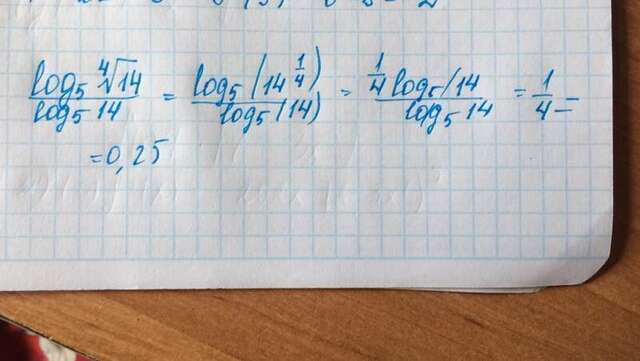 log₅ ⁴√14 / log₅ 14 = log₅(14^(1/4)) / log₅(14) = 1/4 log₅ 14 / log₅ 14 = 1/4 =
= 0,25